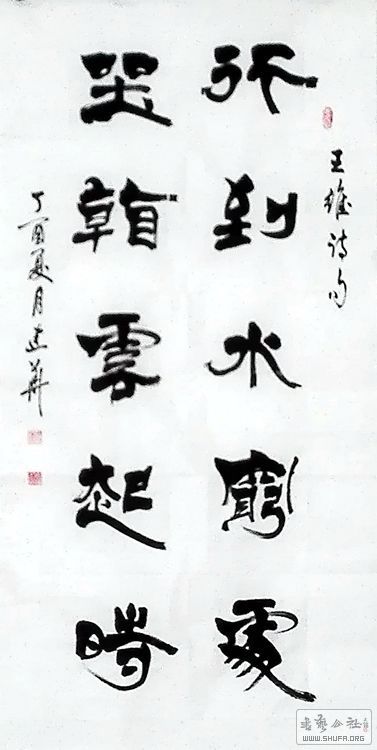 王維诗句
行到水窮處
坐看雲起時
丁酉夏月建華
书艺公社
WWW.SHUFA.ORG